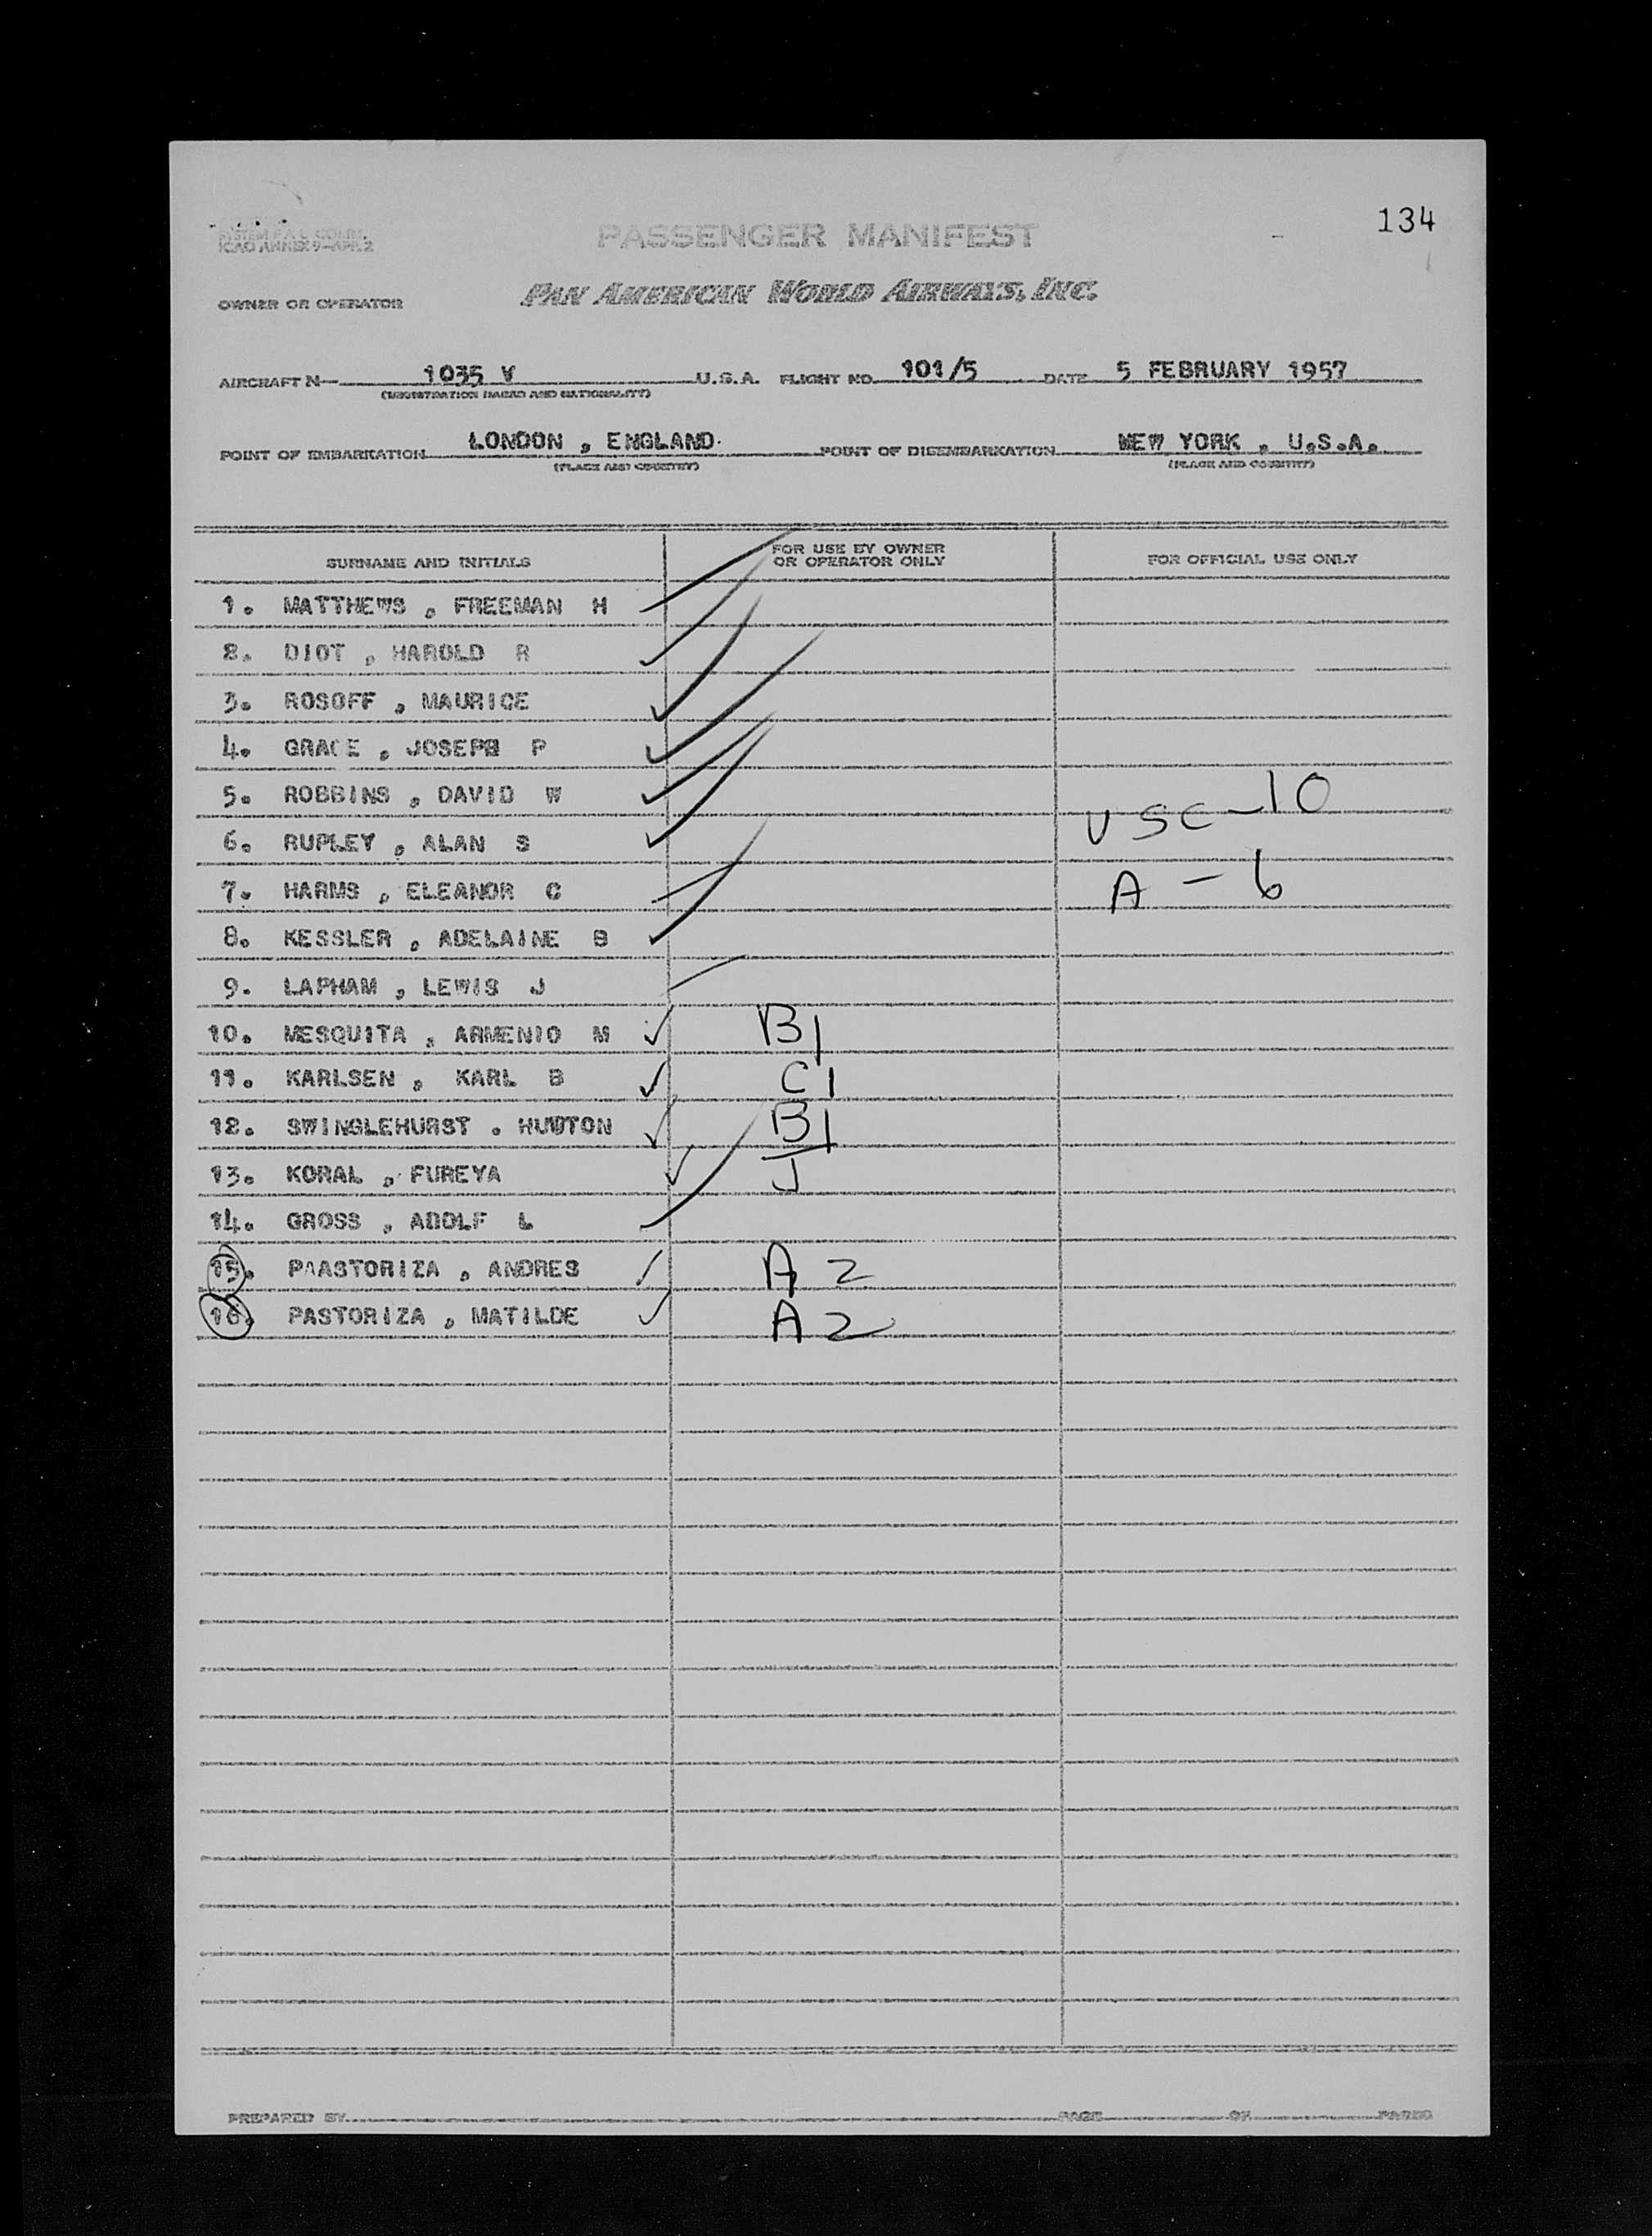 134
SYSTEM F.A.L. COMM.
ICAO ANNEX 9-APP. 2
PASSENGER MANIFEST
OWNER OR OPERATOR PAN AMERICAN WORLD AIRWAYS, INC.
AIRCRAFT N 1035 V U.S.A. FLIGHT NO. 101/5 DATE 5 FEBRUARY 1957
(REGISTRATION MARKS AND NATIONALITY)
POINT OF EMBARKATION LONDON , ENGLAND. POINT OF DISEMBARKATION NEW YORK , U.S.A.
(PLACE AND COUNTRY) (PLACE AND COUNTRY)
SURNAME AND INITIALS FOR USE BY OWNER OR OPERATOR ONLY FOR OFFICIAL USE ONLY
1. MATTHEWS , FREEMAN H
2. DIOT , HAROLD R
3. ROSOFF , MAURICE
4. GRACE , JOSEPH P
5. ROBBINS , DAVID W USC-10
6. RUPLEY , ALAN S
7. HARMS , ELEANOR C A - 6
8. KESSLER , ADELAINE B
9. LAPHAM , LEWIS J
10. MESQUITA , ARMENIO M B1
11. KARLSEN , KARL B C1
12. SWINGLEHURST . B1
13. KORAL , FUREYA J
14. GROSS , ADOLF L
15. PAASTORIZA , ANDRES A2
16. PASTORIZA , MATILDE A2
PREPARED BY PAGE OF PAGES